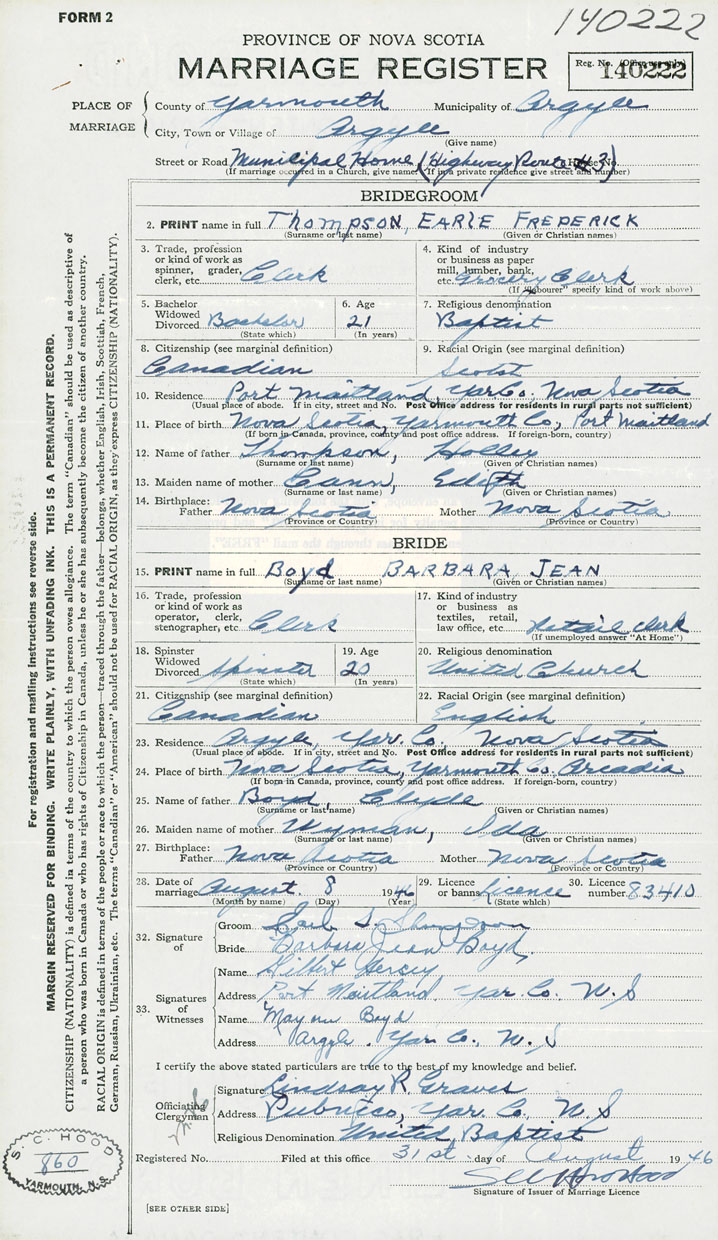 FORM 2
140222
PROVINCE OF NOVA SCOTIA
MARRIAGE REGISTER
Reg. No. (Office use only)
140222
PLACE OF MARRIAGE
County of Yarmouth Municipality of Argyle
City, Town or Village of Argyle
(Give name)
Street or Road Municipal Home, (Highway Route # 3) House No.
(If marriage occurred in a Church, give name. If in a private residence give street and number)
BRIDEGROOM
2. PRINT name in full Thompson, EARLE FREDERICK
(Surname or last name) (Given or Christian names)
3. Trade, profession or kind of work as spinner, grader, clerk, etc. Clerk
4. Kind of industry or business as paper mill, lumber, bank, etc. Grocery Clerk
(If "labourer" specify kind of work above)
5. Bachelor Widowed Divorced Bachelor
(State which)
6. Age 21
(In years)
7. Religious denomination
Baptist
8. Citizenship (see marginal definition)
Canadian
9. Racial Origin (see marginal definition)
10. Residence Port Maitland, Yar. Co. Nova Scotia
(Usual place of abode. If in city, street and No. Post Office address for residents in rural parts not sufficient)
11. Place of birth Nova Scotia, Yarmouth Co, Port Maitland
(If born in Canada, province, county and post office address. If foreign-born, country)
12. Name of father Thompson, Holley
(Surname or last name) (Given of Christian names)
13. Maiden name of mother Cann, Edith
(Surname or last name) (Given or Christian names)
14. Birthplace: Father Nova Scotia Mother Nova Scotia
(Province or Country) (Province or Country)
BRIDE
15. PRINT name in full Boyd BARBARA JEAN
(Surname or last name) (Given or Christian names)
16. Trade, profession or kind of work as operator, clerk, stenographer, etc Clerk
17. Kind of industry or business as textiles, retail, law office, etc. Retail clerk
(If unemployed answer "At Home")
18. Spinster Widowed Divorced Spinster
(State which)
19. Age 20
(In years)
20. Religious denomination
United Church
21. Citizenship (see marginal definition)
Canadian
22. Racial Origin (see marginal definition)
English
23. Residence Argyle, Yar. Co. Nova Scotia
(Usual place of abode. If in city, street and No. Post Office address for residents in rural parts not sufficient)
24. Place of birth Nova Scotia, Yarmouth Co. Arcadia
(If born in Canada, province, county and post office address. If foreign-born, country)
25. Name of father Boyd, Clyde
(Surname or last name) (Given or Christian names)
26. Maiden name of mother Wyman, Ida
(Surname or last name) (Given or Christian names)
27. Birthplace: Father Nova Scotia Mother Nova Scotia
(Province or Country) (Province or Country)
28. Date of marriage August 8 1946
(Month by name) (Day) (Year)
29. Licence or banns Licence
(State which)
30. Licence number 83410
32. Signature of
Groom
Bride Barbara Jean Boyd
33. Signatures of Witnesses
Name Gilbert
Address Port Maitland Yar. Co. N. S
Name Boyd
Address Argyle. Yar Co., N. S
I certify the above stated particulars are true to the best of my knowledge and belief.
Officiating Clergyman
Signature Lindsay R. Graves
Address Pubnico, Yar. Co., N. S
Religious Denomination United Baptist
Registered No. Filed at this office 31st day of August 1946
Signature of Issuer of Marriage Licence
[SEE OTHER SIDE]
For registration and mailing instructions see reverse side.
MARGIN RESERVED FOR BINDING. WRITE PLAINLY, WITH UNFADING INK. THIS IS A PERMANENT RECORD.
CITIZENSHIP (NATIONALITY) is defined in terms of the country to which the person owes allegiance. The term "Canadian" should be used as descriptive of
a person who was born in Canada or who has rights of Citizenship in Canada, unless he or she has subsequently become the citizen of another country.
RACIAL ORIGIN is defined in terms of the people or race to which the person—traced through the father—belongs, whether English, Irish, Scottish, French,
German, Russian, Ukrainian, etc. The terms "Canadian" or "American" should not be used for RACIAL ORIGIN, as they express CITIZENSHIP (NATIONALITY).
S. C. HOOD
860
YARMOUTH, N.S.